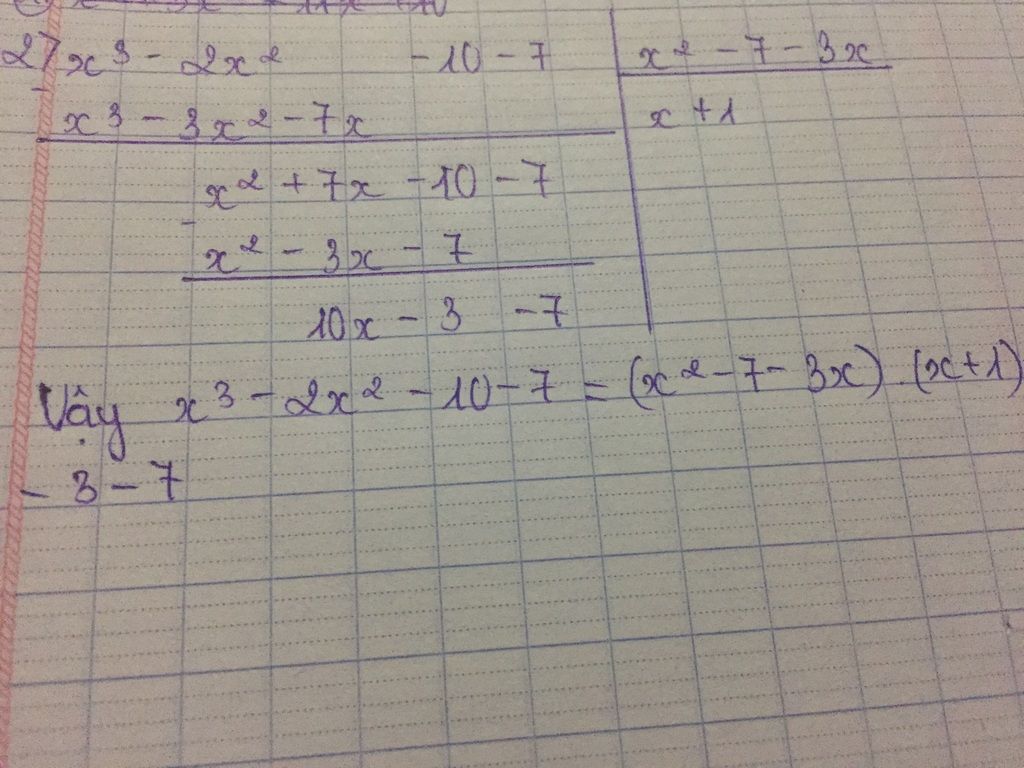 27 x³ - 2x² - 10 - 7 x² - 7 - 3x
- x³ - 3x² - 7x x + 1
x² + 7x - 10 - 7
- x² - 3x - 7
10x - 3 - 7
Vậy x³ - 2x² - 10 - 7 = (x² - 7 - 3x) . (x + 1)
- 3 - 7